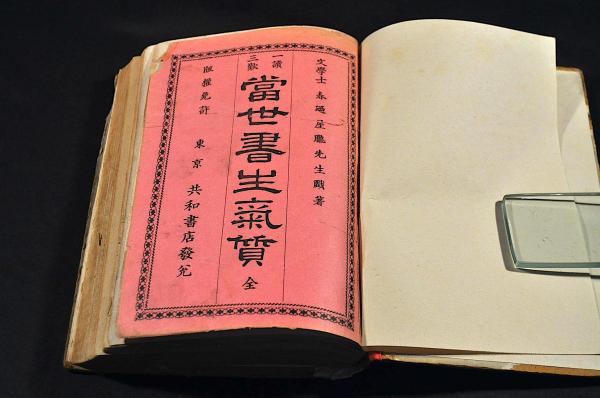 文學士 春廼屋朧先生戲著
一讀三歎
當世書生氣質 全
版權免許
東京 共和書店發兌